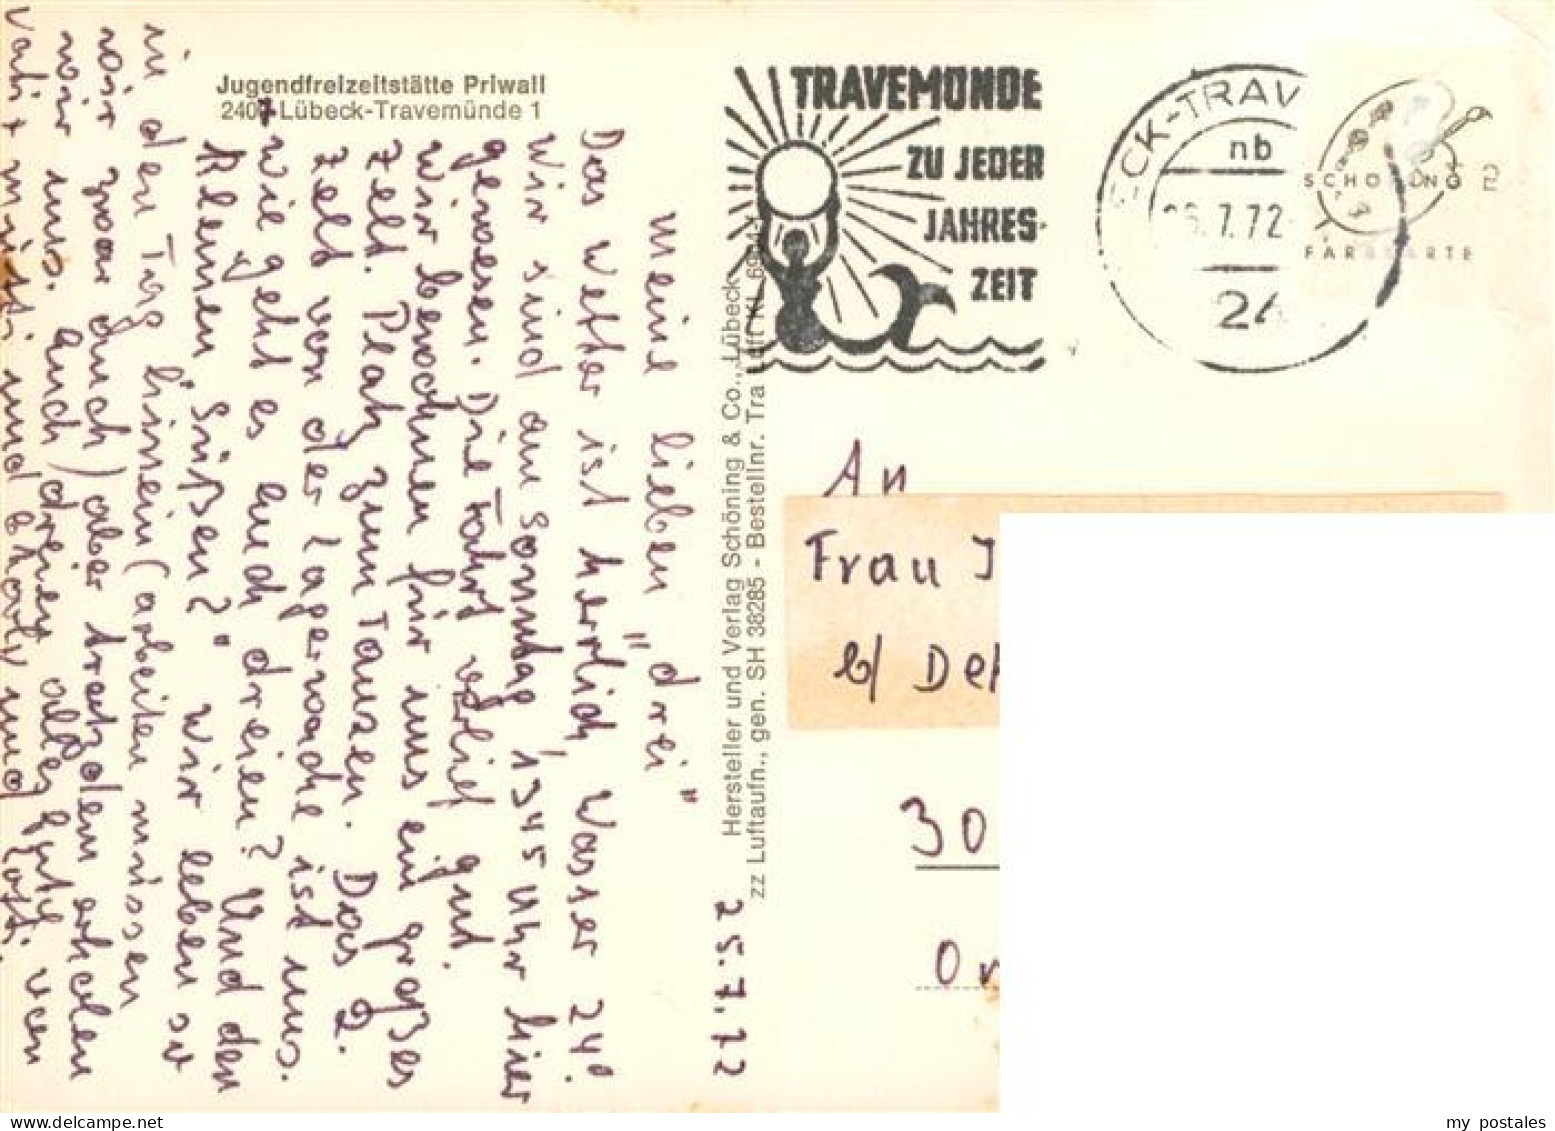 Jugendfreizeitstätte Priwall
2400 Lübeck-Travemünde 1
25.7.72
Meine lieben "drei"
Das Wetter ist herrlich, Wasser 24°.
Wir sind am Sonntag, 1345 Uhr hier
gewesen. Die Fahrt verlief gut.
Wir bewohnen für uns ein großes
Zelt. Platz zum Tanzen. Das 2.
Zelt von der Lagerwache ist uns.
Wie geht es euch dreien? Und den
kleinen "Süßen?" Wir leben so
in den Tag hinein (arbeiten müssen
wir zwar auch) aber trotzdem erholen
wir uns. Euch dreien alles gute von
Vati + Mutti und
Hersteller und Verlag Schöning & Co., Lübeck
zz Luftaufn., gen. SH 38285 - Bestellnr. Tra Luft KL
TRAVEMÜNDE
ZU JEDER
JAHRES-
ZEIT
ECK-TRAV
nb
7.72
24
SCHÖNING
FARBKARTE
An
Frau I
b/ Deh
30